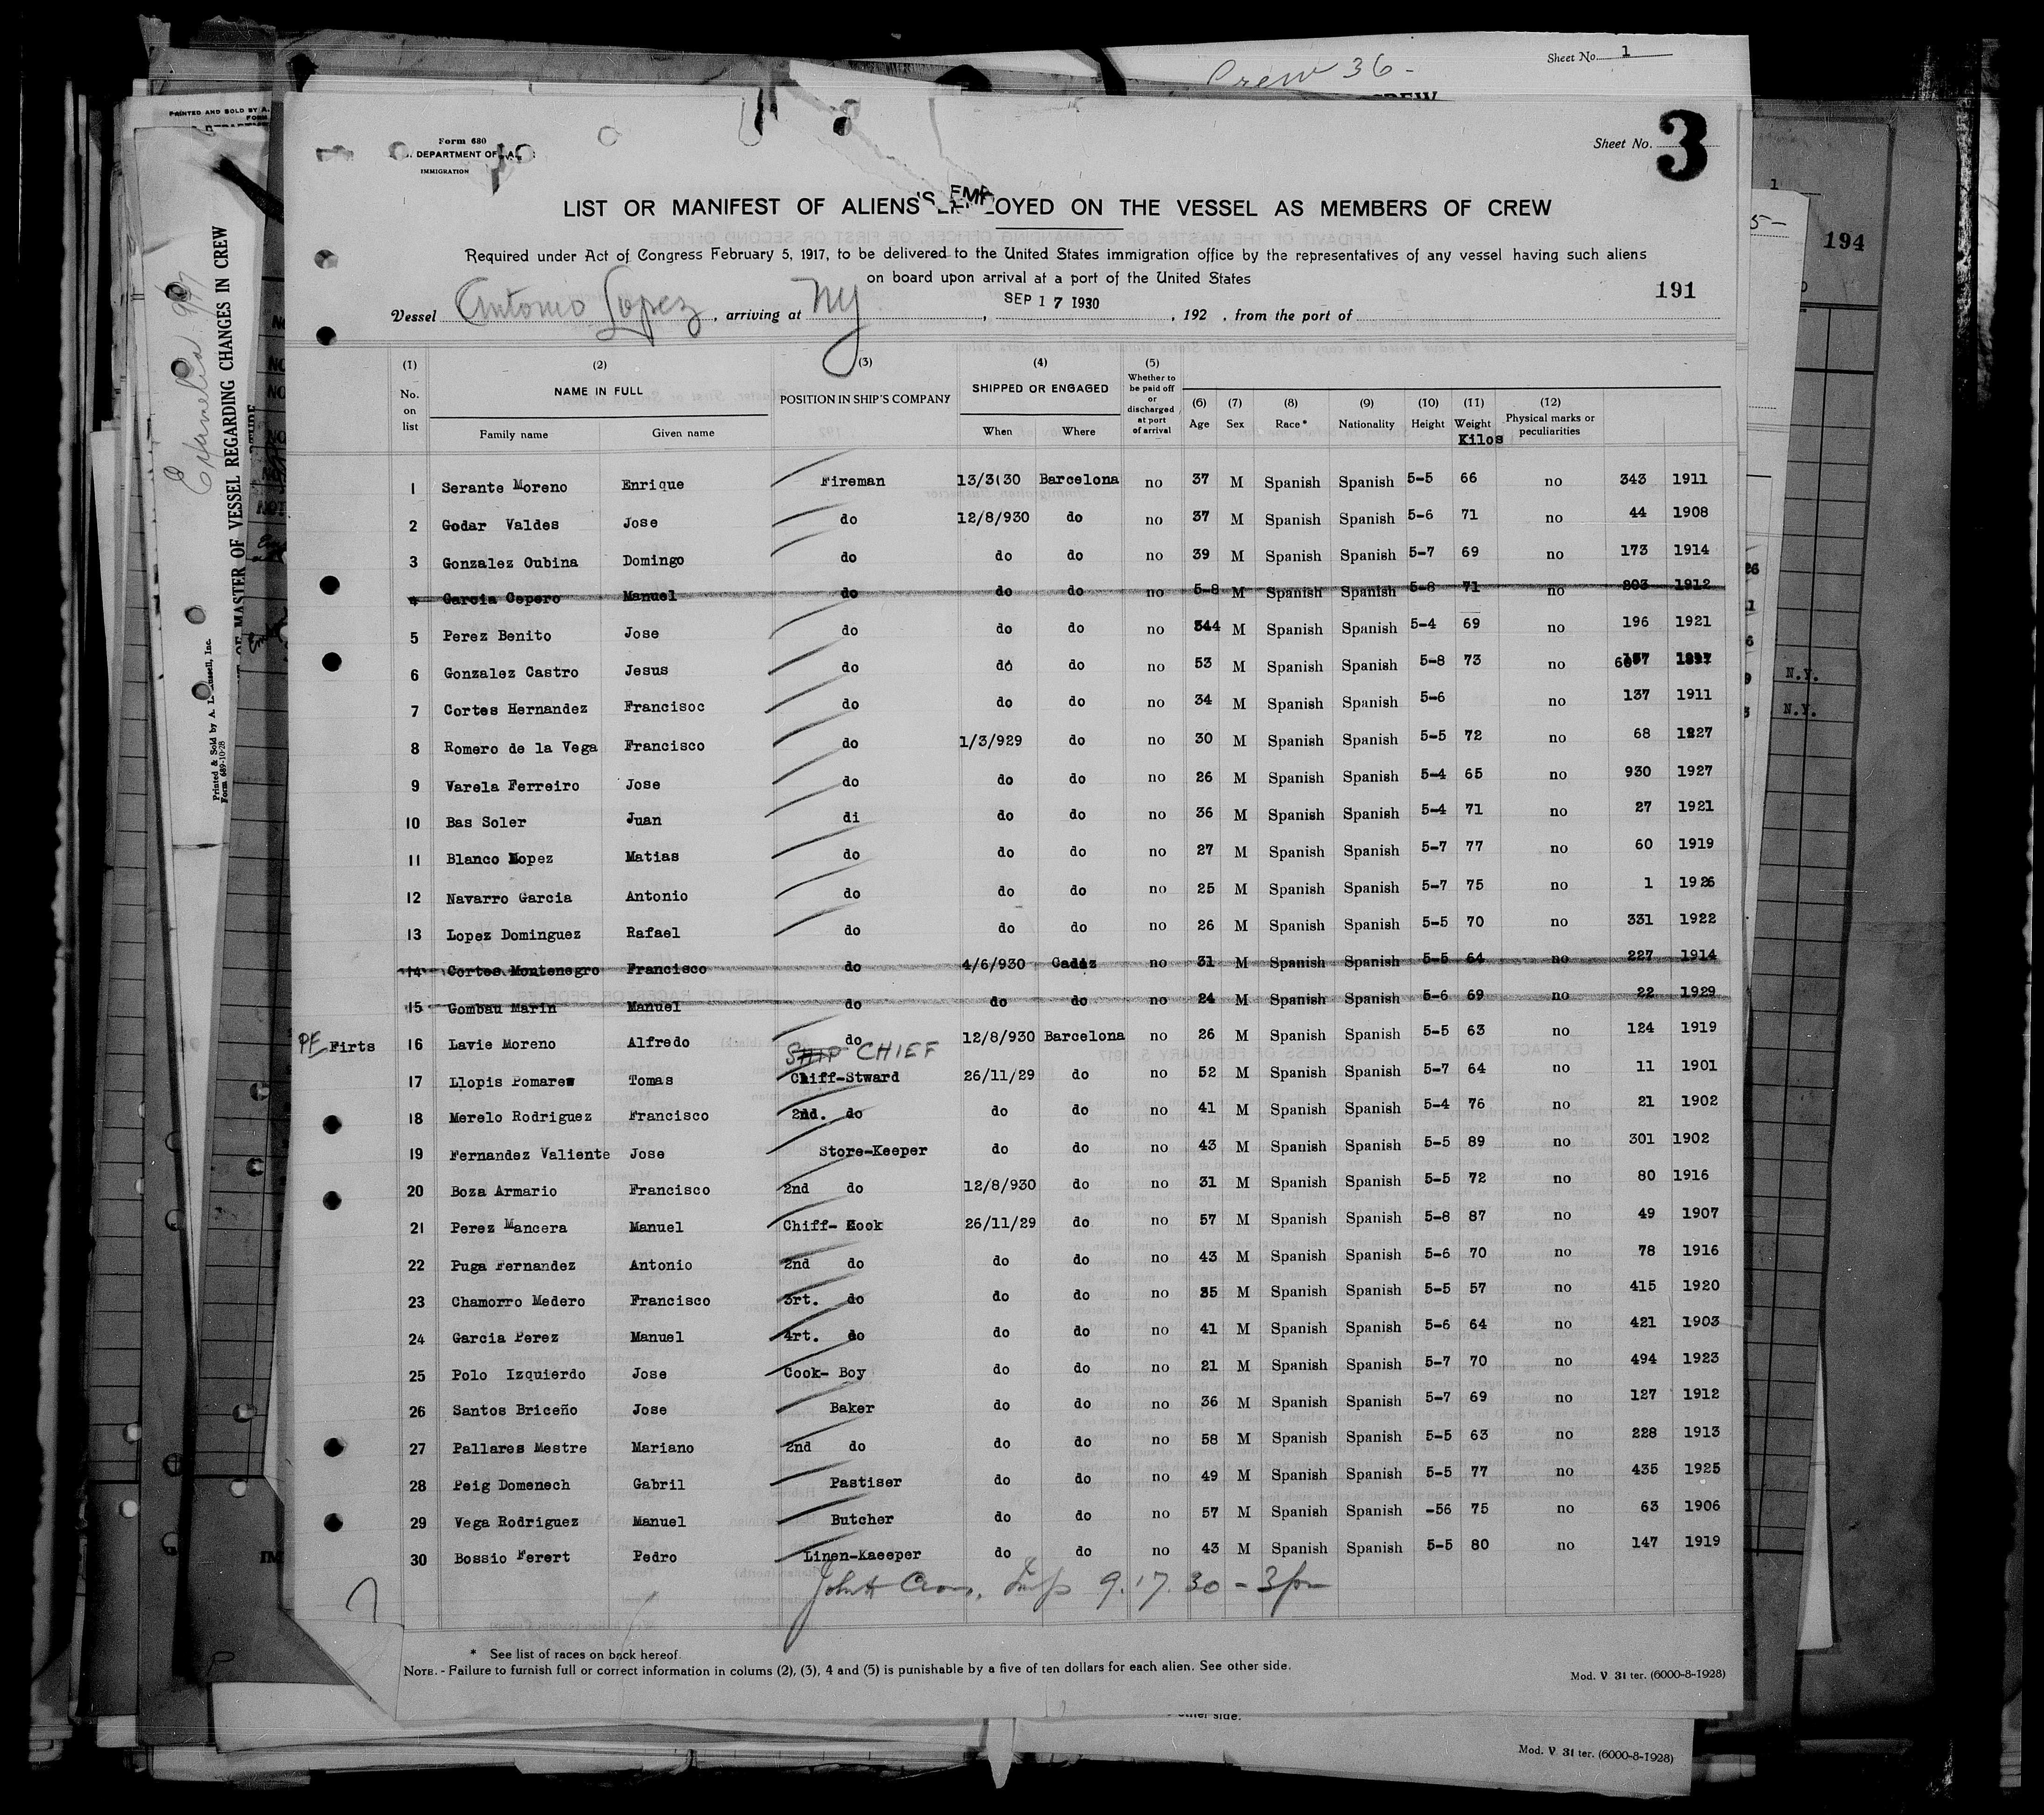 Crew 36-
Sheet No. 1
PRINTED AND SOLD BY A.
FORM
Form 680
DEPARTMENT OF
IMMIGRATION
Sheet No. 3
LIST OR MANIFEST OF ALIENS EMPLOYED ON THE VESSEL AS MEMBERS OF CREW
Required under Act of Congress February 5, 1917, to be delivered to the United States immigration office by the representatives of any vessel having such aliens
on board upon arrival at a port of the United States
191
194
Vessel Antonio Lopez, arriving at NY, SEP 17 1930, 192 , from the port of
(1) No. on list
(2) NAME IN FULL
Family name Given name
(3) POSITION IN SHIP'S COMPANY
(4) SHIPPED OR ENGAGED
When Where
(5) Whether to be paid off or discharged at port of arrival
(6) Age (7) Sex (8) Race* (9) Nationality (10) Height (11) Weight Kilos (12) Physical marks or peculiarities
1 Serante Moreno Enrique Fireman 13/3(30 Barcelona no 37 M Spanish Spanish 5-5 66 no 343 1911
2 Godar Valdes Jose do 12/8/930 do no 37 M Spanish Spanish 5-6 71 no 44 1908
3 Gonzalez Oubina Domingo do do do no 39 M Spanish Spanish 5-7 69 no 173 1914
4 Garcia Cepero Manuel do do do no 5-8 M Spanish Spanish 5-8 71 no 803 1912
5 Perez Benito Jose do do do no 344 M Spanish Spanish 5-4 69 no 196 1921
6 Gonzalez Castro Jesus do do do no 53 M Spanish Spanish 5-8 73 no
7 Cortes Hernandez Francisoc do do do no 34 M Spanish Spanish 5-6 no 137 1911
8 Romero de la Vega Francisco do 1/3/929 do no 30 M Spanish Spanish 5-5 72 no 68 1827
9 Varela Ferreiro Jose do do do no 26 M Spanish Spanish 5-4 65 no 930 1927
10 Bas Soler Juan di do do no 36 M Spanish Spanish 5-4 71 no 27 1921
11 Blanco Lopez Matias do do do no 27 M Spanish Spanish 5-7 77 no 60 1919
12 Navarro Garcia Antonio do do do no 25 M Spanish Spanish 5-7 75 no 1 1926
13 Lopez Dominguez Rafael do do do no 26 M Spanish Spanish 5-5 70 no 331 1922
14 Cortes Montenegro Francisco do 4/6/930 Cadiz no 31 M Spanish Spanish 5-5 64 no 227 1914
15 Gombau Marin Manuel do do do no 24 M Spanish Spanish 5-6 69 no 22 1929
PE Firts 16 Lavie Moreno Alfredo do 12/8/930 Barcelona no 26 M Spanish Spanish 5-5 63 no 124 1919
SHIP CHIEF
17 Llopis Pomares Tomas Chiff-Stward 26/11/29 do no 52 M Spanish Spanish 5-7 64 no 11 1901
18 Merelo Rodriguez Francisco 2nd. do do do no 41 M Spanish Spanish 5-4 76 no 21 1902
19 Fernandez Valiente Jose Store-Keeper do do no 43 M Spanish Spanish 5-5 89 no 301 1902
20 Boza Armario Francisco 2nd do 12/8/930 do no 31 M Spanish Spanish 5-5 72 no 80 1916
21 Perez Mancera Manuel Chiff- Kook 26/11/29 do no 57 M Spanish Spanish 5-8 87 no 49 1907
22 Puga Fernandez Antonio 2nd do do do no 43 M Spanish Spanish 5-6 70 no 78 1916
23 Chamorro Medero Francisco 3rt. do do do no 35 M Spanish Spanish 5-5 57 no 415 1920
24 Garcia Perez Manuel 4rt. do do do no 41 M Spanish Spanish 5-6 64 no 421 1903
25 Polo Izquierdo Jose Cook- Boy do do no 21 M Spanish Spanish 5-7 70 no 494 1923
26 Santos Briceño Jose Baker do do no 36 M Spanish Spanish 5-7 69 no 127 1912
27 Pallares Mestre Mariano 2nd do do do no 58 M Spanish Spanish 5-5 63 no 228 1913
28 Peig Domenech Gabril Pastiser do do no 49 M Spanish Spanish 5-5 77 no 435 1925
29 Vega Rodriguez Manuel Butcher do do no 57 M Spanish Spanish -56 75 no 63 1906
30 Bossio Ferert Pedro Linen-Kaeeper do do no 43 M Spanish Spanish 5-5 80 no 147 1919
9.17.30 - 3pm
* See list of races on back hereof.
NOTE. - Failure to furnish full or correct information in colums (2), (3), 4 and (5) is punishable by a five of ten dollars for each alien. See other side.
Mod. V 31 ter. (6000-8-1928)
other side.
Mod. V 31 ter. (6000-8-1928)
MASTER OF VESSEL REGARDING CHANGES IN CREW
Form 689-10-28
N.Y.
N.Y.